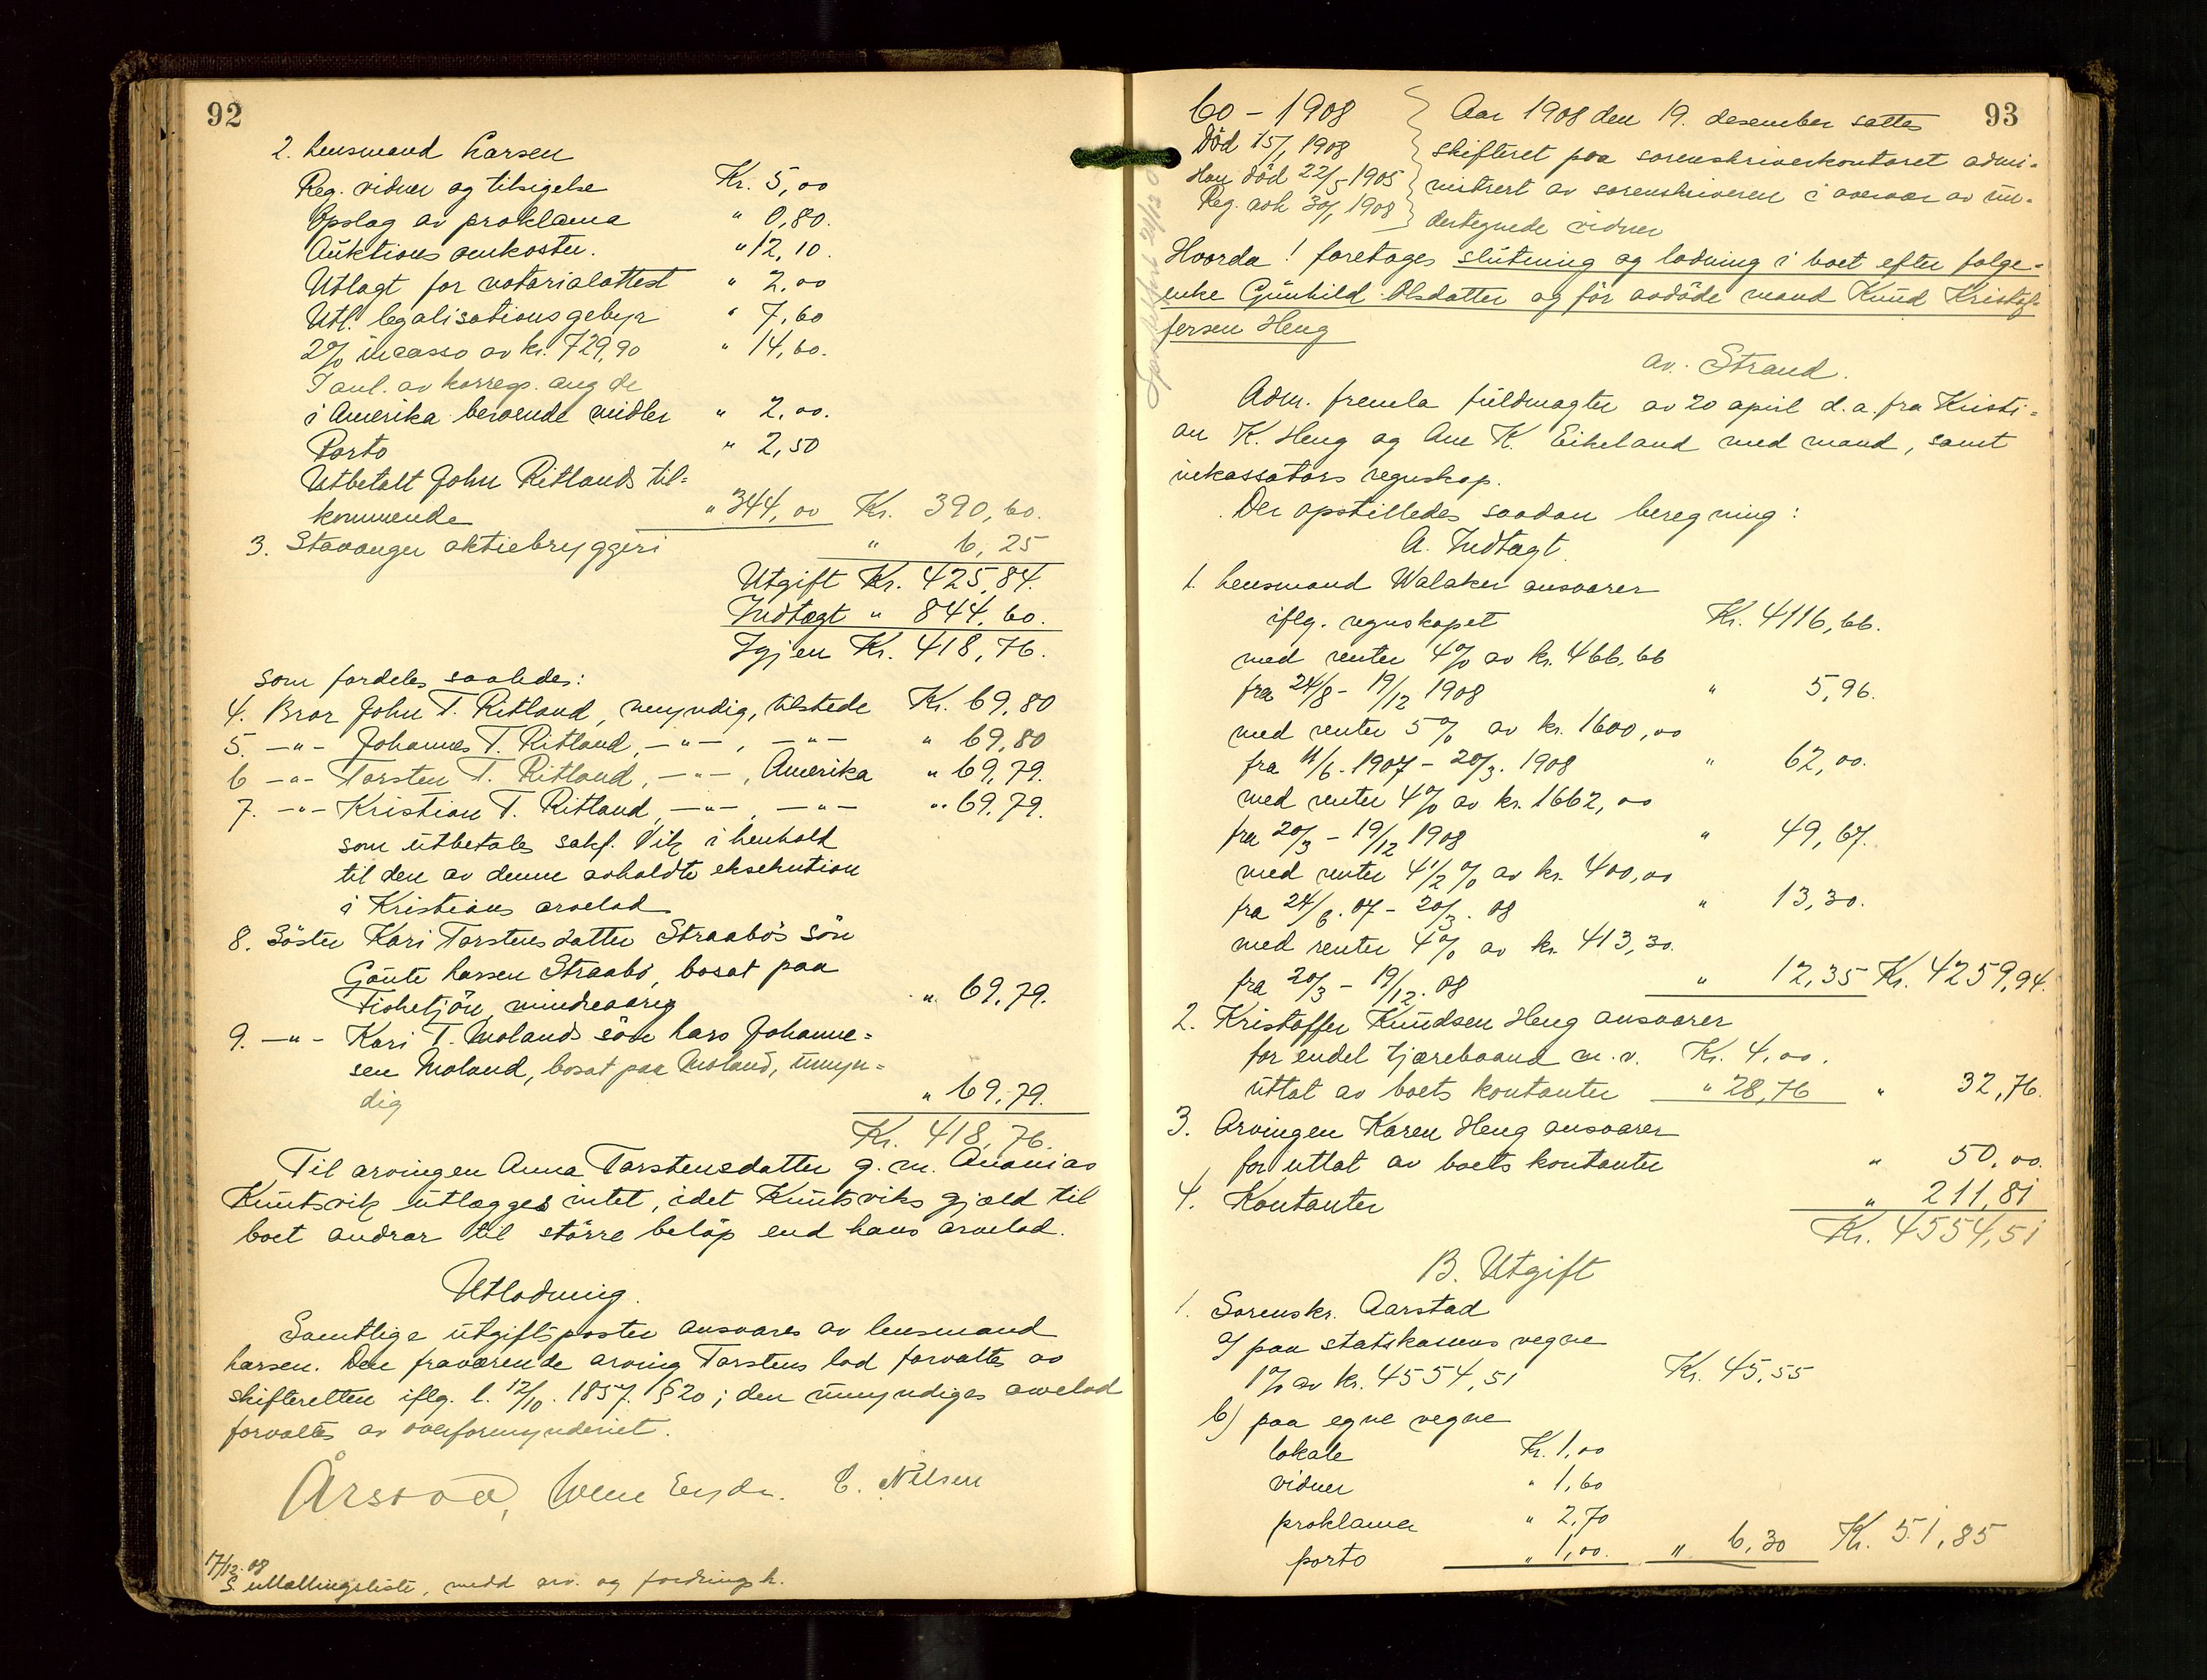 92
2. Lensmand Larsen
Reg. vidner og tilsigelse Kr. 5,00
Opslag av proklama " 0,80.
Auktions omkoster. " 12,10.
Utlagt for notarialattest " 2.00
Utl. legalisationsgebyr " 7,60
2% incasso av kr. 729,90 " 14,60.
I anl. av korresp. ang de
i Amerika beroende midler " 2,00.
Porto " 2,50
Utbetalt John Ritlands til=
kommende " 344,00 Kr. 390,60.
3. Stavanger aktiebryggeri " 6,25
Utgift Kr. 425,84.
Indtægt " 844,60.
Igjen Kr. 418,76.
som fordeles saaledes:
4. Bror John T. Ritland, myndig, tilstede Kr. 69,80
5. -"- Johannes T. Ritland, -"-, -"- " 69,80
6 -"- Torsten T. Ritland, -"-, Amerika " 69,79.
7. -"- Kristian T. Ritland, -"-, -"- " 69,79.
som utbetales sakf. Vik i henhold
til den av denne avholdte eksekution
i Kristians arvelod
8. Söster Kari Torstensdatter Straabös sön
Gaute Larsen Straabö, bosat paa
Fisketjön, mindreaarig " 69,79.
9. -"- Kari T. Molands sön Lars Johanne=
sen Moland, bosat paa Moland, umyn=
dig " 69,79.
Kr. 418,76.
Til arvingen Anna Torstensdatter g. m. Ananias
Knutsvik utlægges intet, idet Knutsviks gjæld til
boet andrar til större belöp end hans arvelod.
Utlodning.
Samtlige utgiftsposter ansvares av lensmand
Larsen. Den fraværende arving Torstens lod forvaltes av
skifteretten iflg. l. 12/10. 1857. § 20; den umyndiges arvelod
forvaltes av overformynderiet.
Årstad, E. Nilsen
17/12.08
S. utlodningsliste, medd arv. og fordringsh.
93
60 - 1908
Död 15/1 1908
Han död 22/5 1905
Reg. avh 30/1 1908
Aar 1908 den 19. desember sattes
skifteret paa sorenskriverkontoret admi-
nistrert av sorenskriveren i overvær av un-
dertegnede vidner
Hvorda! foretoges slutning og lodning i boet efter følge-
enke Gunhild Olsdatter og før avdöde mand Knud Kristof-
fersen Heng
av Strand.
Adm. fremla fuldmagter av 20 april d. a. fra Kristi=
an K. Heng og Ane K. Eikeland med mand, samt
inkassators regnskap.
Der opstilledes saadan beregning:
A. Indtægt
1. Lensmand Walaker ansvarer
iflg. regnskapet Kr. 4116,66.
med renter 4% av kr. 466,66
fra 24/8 - 19/12 1908 " 5,96.
med renter 5% av kr. 1600,00
fra 11/6. 1907 - 20/3. 1908 " 62,00.
med renter 4% av kr. 1662,00
fra 20/3 - 19/12 1908 " 49,67.
med renter 4 1/2 % av kr. 400,00
fra 24/6. 07 - 20/3. 08 " 13,30.
med renter 4% av kr. 413,30.
fra 20/3 - 19/12. 08 " 12,35 Kr. 4259,94.
2. Kristoffer Knudsen Heng ansvarer
for endel tjærebaand m. v. Kr. 4,00.
uttat av boets kontanter " 28,76 " 32,76.
3. Arvingen Karen Heng ansvarer
for uttat av boets kontanter " 50,00.
4. Kontanter " 211,81
Kr. 4554,51
B. Utgift
1. Sorenskr. Aarstad
a) paa statskassens vegne
1% av kr. 4554,51 Kr. 45,55
b) paa egne vegne
lokale Kr. 1,00
vidner " 1,60
proklama " 2,70
porto " 1,00. " 6,30 Kr. 51,85